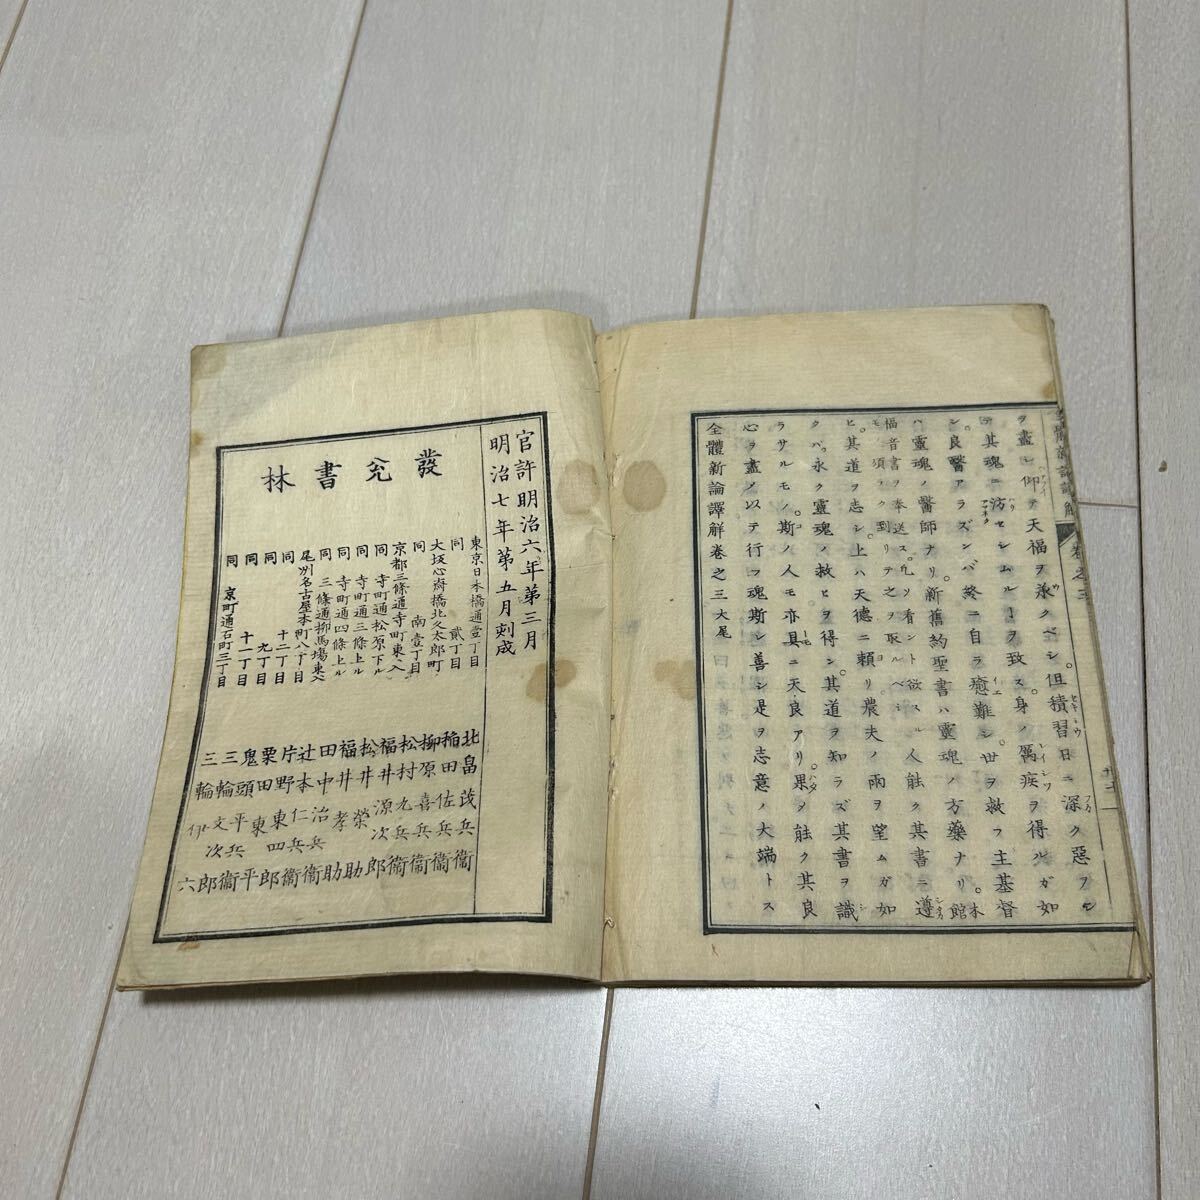 ヲ盡シ仰テ天福ヲ承クベシ。但積習日ニ深ク惡フモ
テ其魂ニ汸セシムルヿヲ致ス。身ノ厲疾ヲ得ルガ如
シ。良醫アラズンバ終ニ自ラ癒難シ。世ヲ救フ主基督
ハ靈魂ノ醫師ナリ。新舊約聖書ハ靈魂ノ方藥ナリ。本館
福音書ヲ奉送ス。凡ソ看ント欲スル人能ク其書ニ遵
モ須ラク到リテ之ヲ取ルベシ
ヒ。其道ヲ志シ。上ハ天德ニ頼リ。農夫ノ雨ヲ望ムガ如
クバ。永ク靈魂ノ救ヒヲ得ン。其道ヲ知ラズ其書ヲ識
ラサルモノ。斯ノ人モ亦具ニ天良アリ。果ダ能ク其良
心ヲ盡ノ以テ行フ魂斯シ善シ是ヲ志意ノ大端トス
全體新論譯解卷之三大尾
官許明治六年第三月
明治七年第五月刻成
發兌書林
東京日本橋通壹丁目 北畠茂兵衞
同 貳丁目 稲田佐兵衞
大坂心齋橋北久太郎町 柳原喜兵衞
同 南壹丁目 松村九兵衞
京都三條通寺町東入 福井源次郎
同 寺町通松原下ル 松井榮助
同 寺町通三條上ル 福井孝助
同 寺町通四條上ル 田中治兵衞
同 三條通柳馬場東入 辻本仁兵衞
尾州名古屋本町八丁目 片野東四郎
同 十二丁目 栗田東平
同 九丁目 鬼頭平兵衞
同 十一丁目 三輪文次郎
同 京町通石町三丁目 三輪伊六